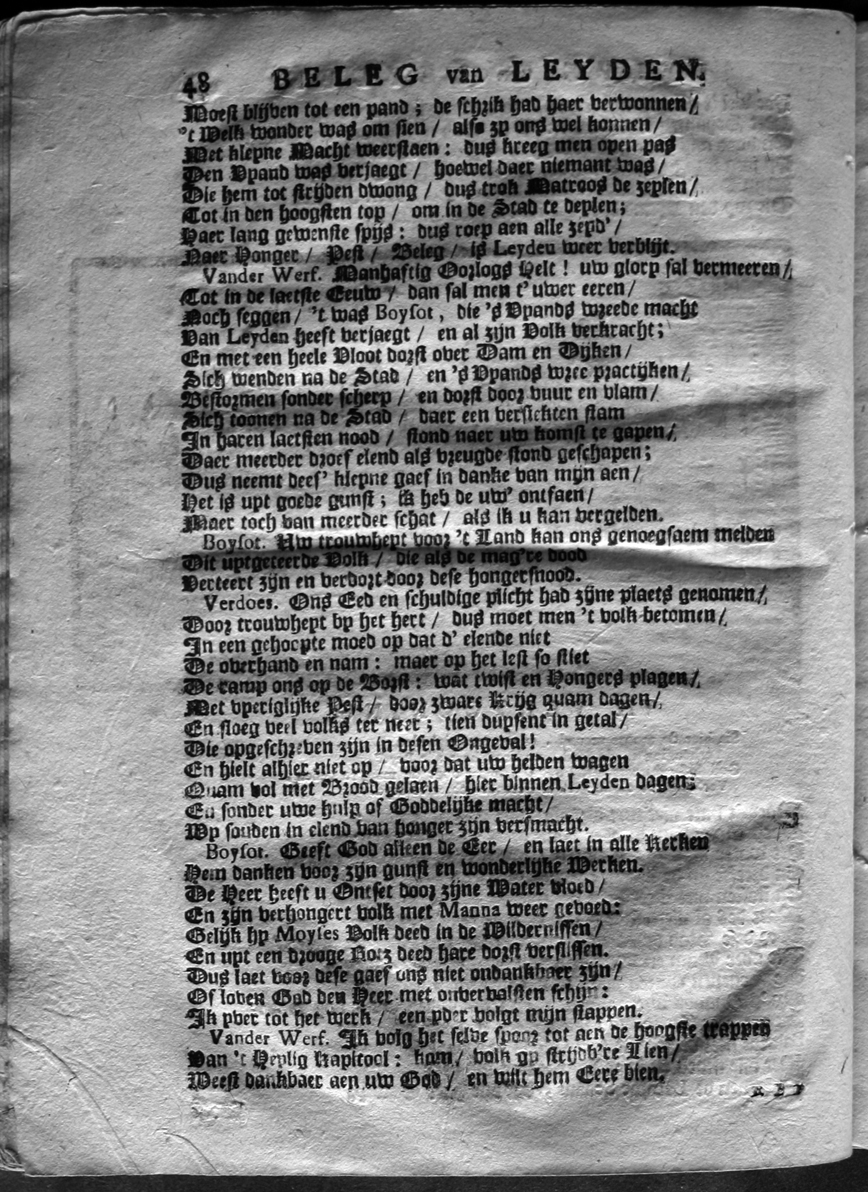 48 BELEG van LEYDEN.
Moest blijven tot een pand; de schrik had haer verwonnen/
't Welk wonder was om sien / also zy ons wel konnen /
Met kleyne Macht weerstaen: dus kreeg men open pas
Den Vyand was verjaegt / hoewel daer niemant was /
Die hem tot strijden dwong / dus trok Matroos de zeylen /
Tot in den hoogsten top / om in de Stad te deylen;
Haer lang gewenste spijs: dus roep aen alle zeyd' /
Naer Honger / Pest / Beleg / is Leyden weer verblijt.
Vander Werf. Manhaftig Oorlogs Helt! uw glory sal vermeeren /
Tot in de laetste Eeuw / dan sal men t'uwer eeren /
Noch seggen / 't was Boysot, die 's Vyands wreede macht
Van Leyden heeft verjaegt / en al zijn Volk verkracht;
En met een heele Vloot dorst over Dam en Dijken /
Sich wenden na de Stad / en 's Vyands wree practijken /
Bestormen sonder scherp / en dorst door vuur en vlam /
Sich toonen na de Stad / daer een versiekten stam
In haren laetsten nood / stond naer uw komst te gapen /
Daer meerder droef elend als vreugde stond geschapen;
Dus neemt dees' kleyne gaef in danke van mijn aen /
Het is uyt goede gunst; ik heb de uw' ontfaen /
Maer toch van meerder schat / als ik u kan vergelden.
Boysot. Uw trouwheyt voor 't Land kan ons genoegsaem melden
Dit uytgeteerde Volk / die als de mag're dood
Verteert zijn en verdort door dese hongersnood.
Verdoes. Ons Eed en schuldige plicht had zijne plaets genomen /
Door trouwheyt by het hert / dus moet men 't volk betomen /
In een gehoopte moed op dat d' elende niet
De overhand en nam: maer op het lest so stiet
De ramp ons op de Borst: wat twist en Hongers plagen /
Met vperiglijke Pest / door zware Krijg quam dagen /
En sloeg veel volks ter neer; tien duysent in getal /
Die opgeschreven zijn in desen Ongeval!
En hielt alhier niet op / voor dat uw helden wagen
Quam vol met Brood gelaen / hier binnen Leyden dagen;
En sonder uwe hulp of Goddelijke macht /
Wy souden in elend van honger zijn versmacht.
Boysot. Geeft God alleen de Eer / en laet in alle Kerken
Hem danken voor zijn gunst en wonderlijke Werken.
De Heer heeft u Ontset door zijne Water vloed /
En zijn verhongert volk met Manna weer gevoed:
Gelijk hy Moyses Volk deed in de Wildernissen /
En uyt een drooge Rotz deed hare dorst verslissen.
Dus laet voor dese gaef ons niet ondankbaer zijn /
Of loven God den Heer met onvervalsten schijn:
Ik yver tot het werk / een yder volgt mijn stappen.
Vander Werf. Ik volg het selve spoor tot aen de hoogste trappen
Van 't Heylig Kapitool: kom / volk gy strijdb're Lien /
Weest dankbaer aen uw God / en wilt hem Eere bien.